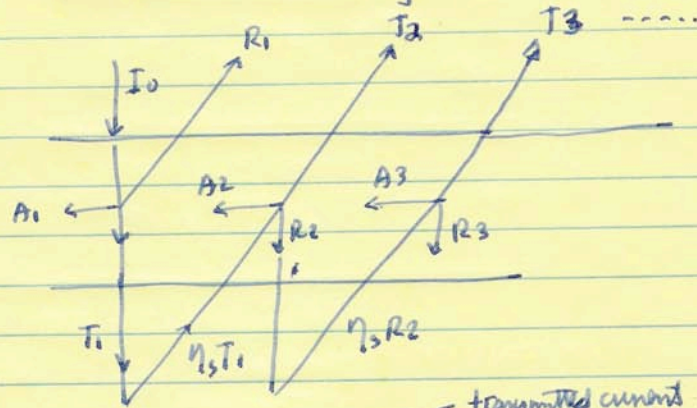 R1 T2 T3 -----
I0
A1 A2 A3
R2 R3
T1 η3T1 η3R2
transmitted current